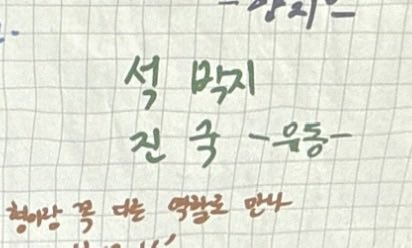 석 박지
진 국 -우동-
형이랑 꼭 다른 역할로 만나